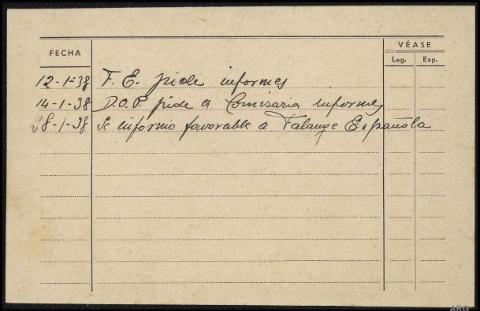 FECHA VÉASE
Leg. Exp.
12-1-38 F. E. pide informes
14-1-38 D.O.P. pide a Comisaria informes
28-1-38 Se informó favorable a Falange Española